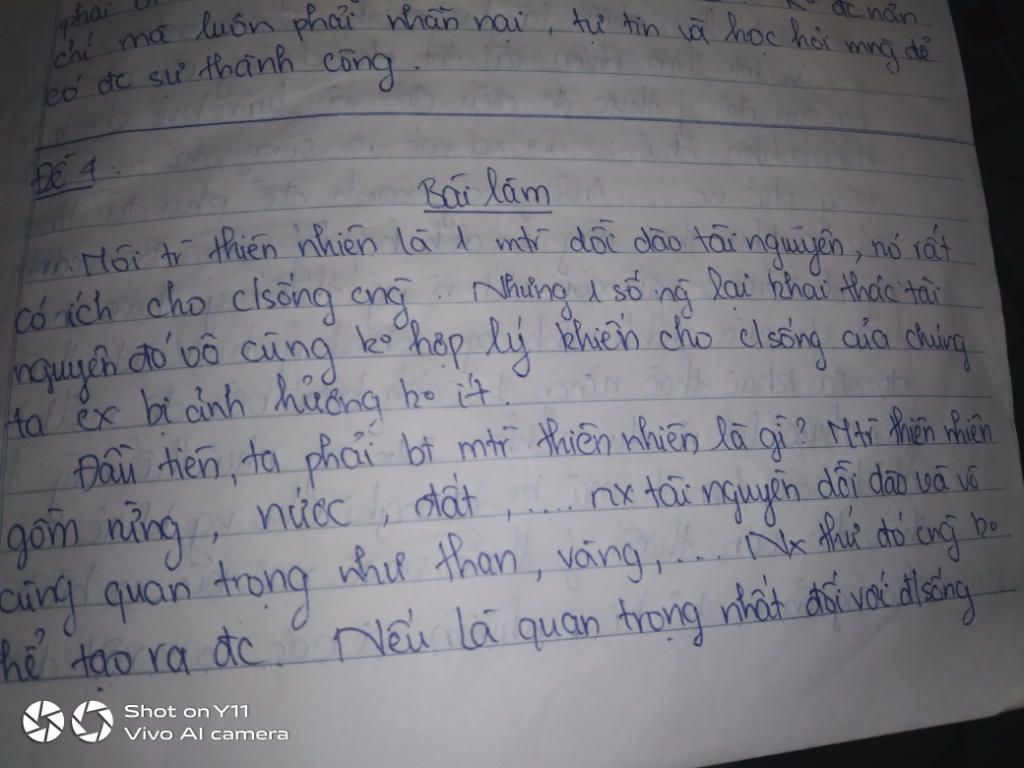 phải
đc nản
chí mà luôn phải nhẫn nại, tự tin và học hỏi mng để
có đc sự thành công.
Đề 4:
Bài làm
Môi tr thiên nhiên là 1 mtr dồi dào tài nguyên, nó rất
có ích cho c/sống cng. Nhưng 1 số ng lại khai thác tài
nguyên đó vô cùng ko hợp lý khiến cho c/sống của chúng
ta cx bị ảnh hưởng ko ít.
Đầu tiên, ta phải bt mtr thiên nhiên là gì? Mtr thiên nhiên
gồm rừng, nước, đất, .... nx tài nguyên dồi dào và vô
cùng quan trọng như than, vàng, ... Nx thứ đó cng ko
hể tạo ra đc. Nếu là quan trọng nhất đối với đ/sống
Shot on Y11
Vivo AI camera